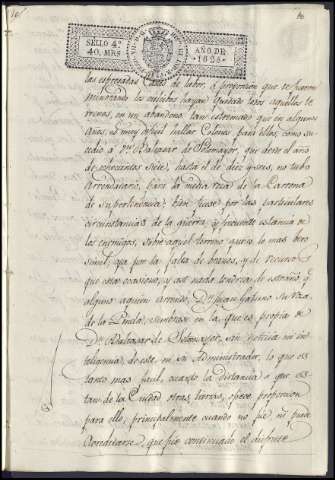 SELLO 4º
40. MRS
AÑO DE
1826
las expresadas Casas de labor, a proporcion que se fueron
minorando los cultivos hayan quedado todos aquellos te-
rrenos, en un abandono tan estremado que en algunos
años, es muy dificil hallar Colonos para ellos, como su-
cedio a Dn. Baltasar de Sotomayor, que desde el año
de ochocientos siete, hasta el de diez y seis, no tubo
Arrendatario, para la media roza de la Cartona
de su pertenencia; bien fuese por las particulares
circunstancias de la guerra, y frecuente estancia de
los enemigos, sobre aquel terreno, que es lo mas bero-
simil, o ya por la falta de brazos, y de recursos
que esta ocasionó, y asi nada tendria de estraño que
alguno a quien arrendó, Dn. Juan
de la Pinda, sembrase en la que es propia de
Dn. Baltasar de Sotomayor, sin noticia ni in-
teligencia, de este, ni su Administrador, lo que es
tanto mas facil, cuanto la distancia a que es-
tan de la Ciudad otras tierras, ofrece proporcion
para ello, principalmente cuando no fue ni pudo
acreditarse, que fue continuado el disfrute